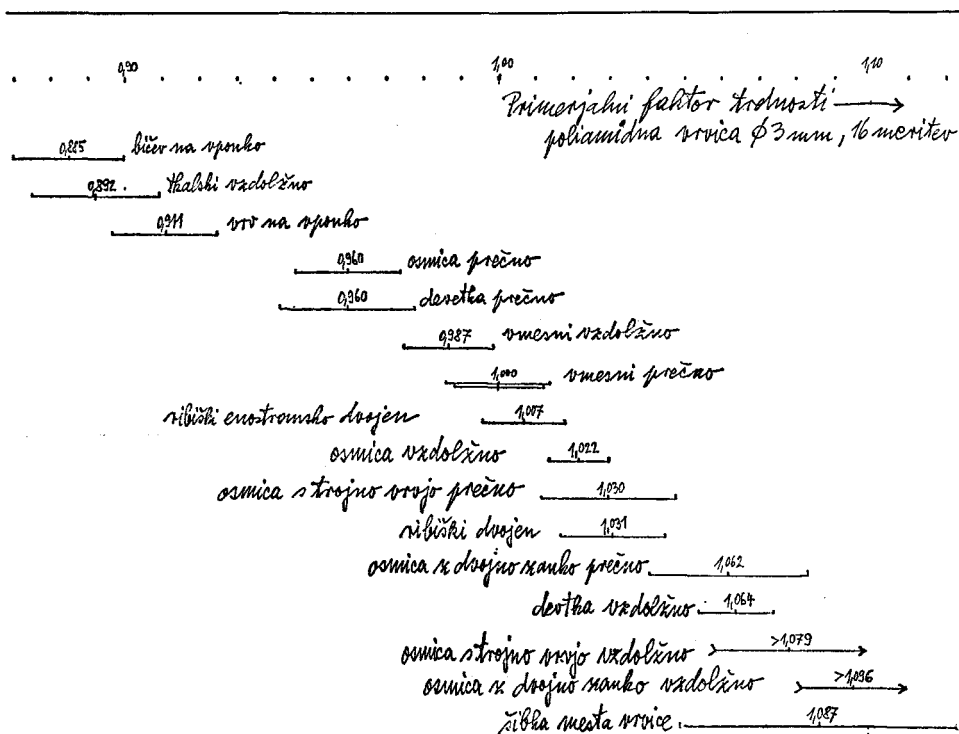 0,90 1,00 1,10
Primerjalni faktor trdnosti →
poliamidna vrvica ∅ 3 mm, 16 meritev
0,885 bičev na vponko
0,892 tkalski vzdolžno
0,911 vrv na vponko
0,960 osmica prečno
0,960 devetka prečno
0,987 vmesni vzdolžno
1,000 vmesni prečno
ribiški enostransko dvojen 1,007
osmica vzdolžno 1,022
osmica s trojno vrvjo prečno 1,030
ribiški dvojen 1,031
osmica z dvojno zanko prečno 1,062
devtka vzdolžno 1,064
osmica s trojno vrvjo vzdolžno >1,079
osmica z dvojno zanko vzdolžno >1,096
šibka mesta vrvice 1,087